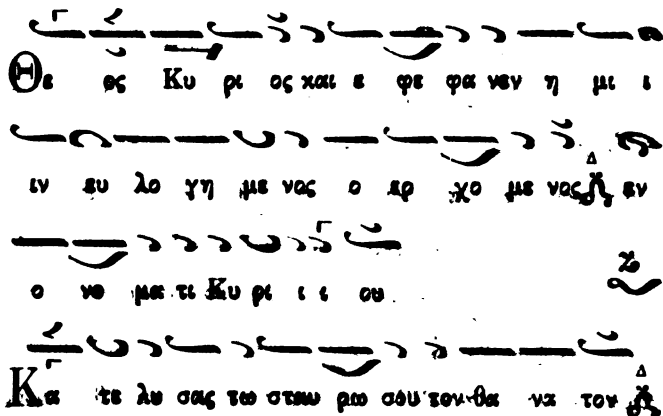 Θε ος Κυ ρι ος και ε φε φα νεν η μι ι
ιν ευ λο γη με νος ο ερ χο με νος Δ εν
ο νο μα τι Κυ ρι ι ι ου
Κα τε λυ σας τω σταυ ρω σου τον θα να τον Δ